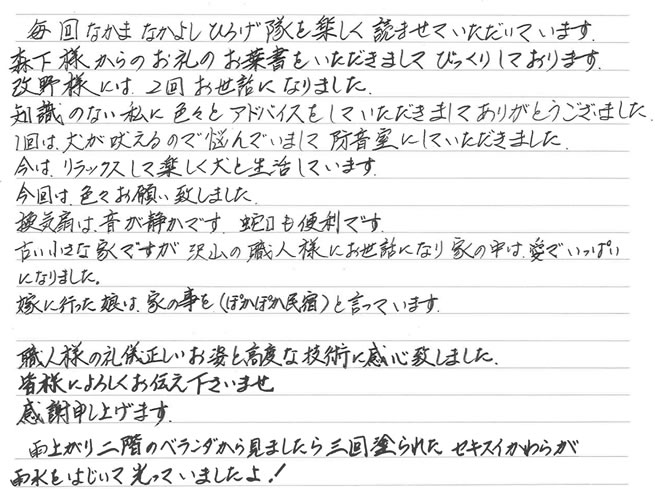 毎回なかまなかよしひろげ隊を楽しく読ませていただいています。
森下様からのお礼のお葉書をいただきましてびっくりしております。
改野様には、2回お世話になりました。
知識のない私に色々とアドバイスをしていただきましてありがとうございました。
1回は、犬が吠えるので悩んでいまして防音室にしていただきました。
今は、リラックスして楽しく犬と生活しています。
今回は、色々お願い致しました。
換気扇は、音が静かです。蛇口も便利です。
古い小さな家ですが沢山の職人様にお世話になり家の中は、愛でいっぱい
になりました。
嫁に行った娘は、家の事を(ぽかぽか民宿)と言っています。
職人様の礼儀正しいお姿と高度な技術に感心致しました。
皆様によろしくお伝え下さいませ
感謝申し上げます。
雨上がり二階のベランダから見ましたら三回塗られたセキスイかわらが
雨水をはじいて光っていましたよ!